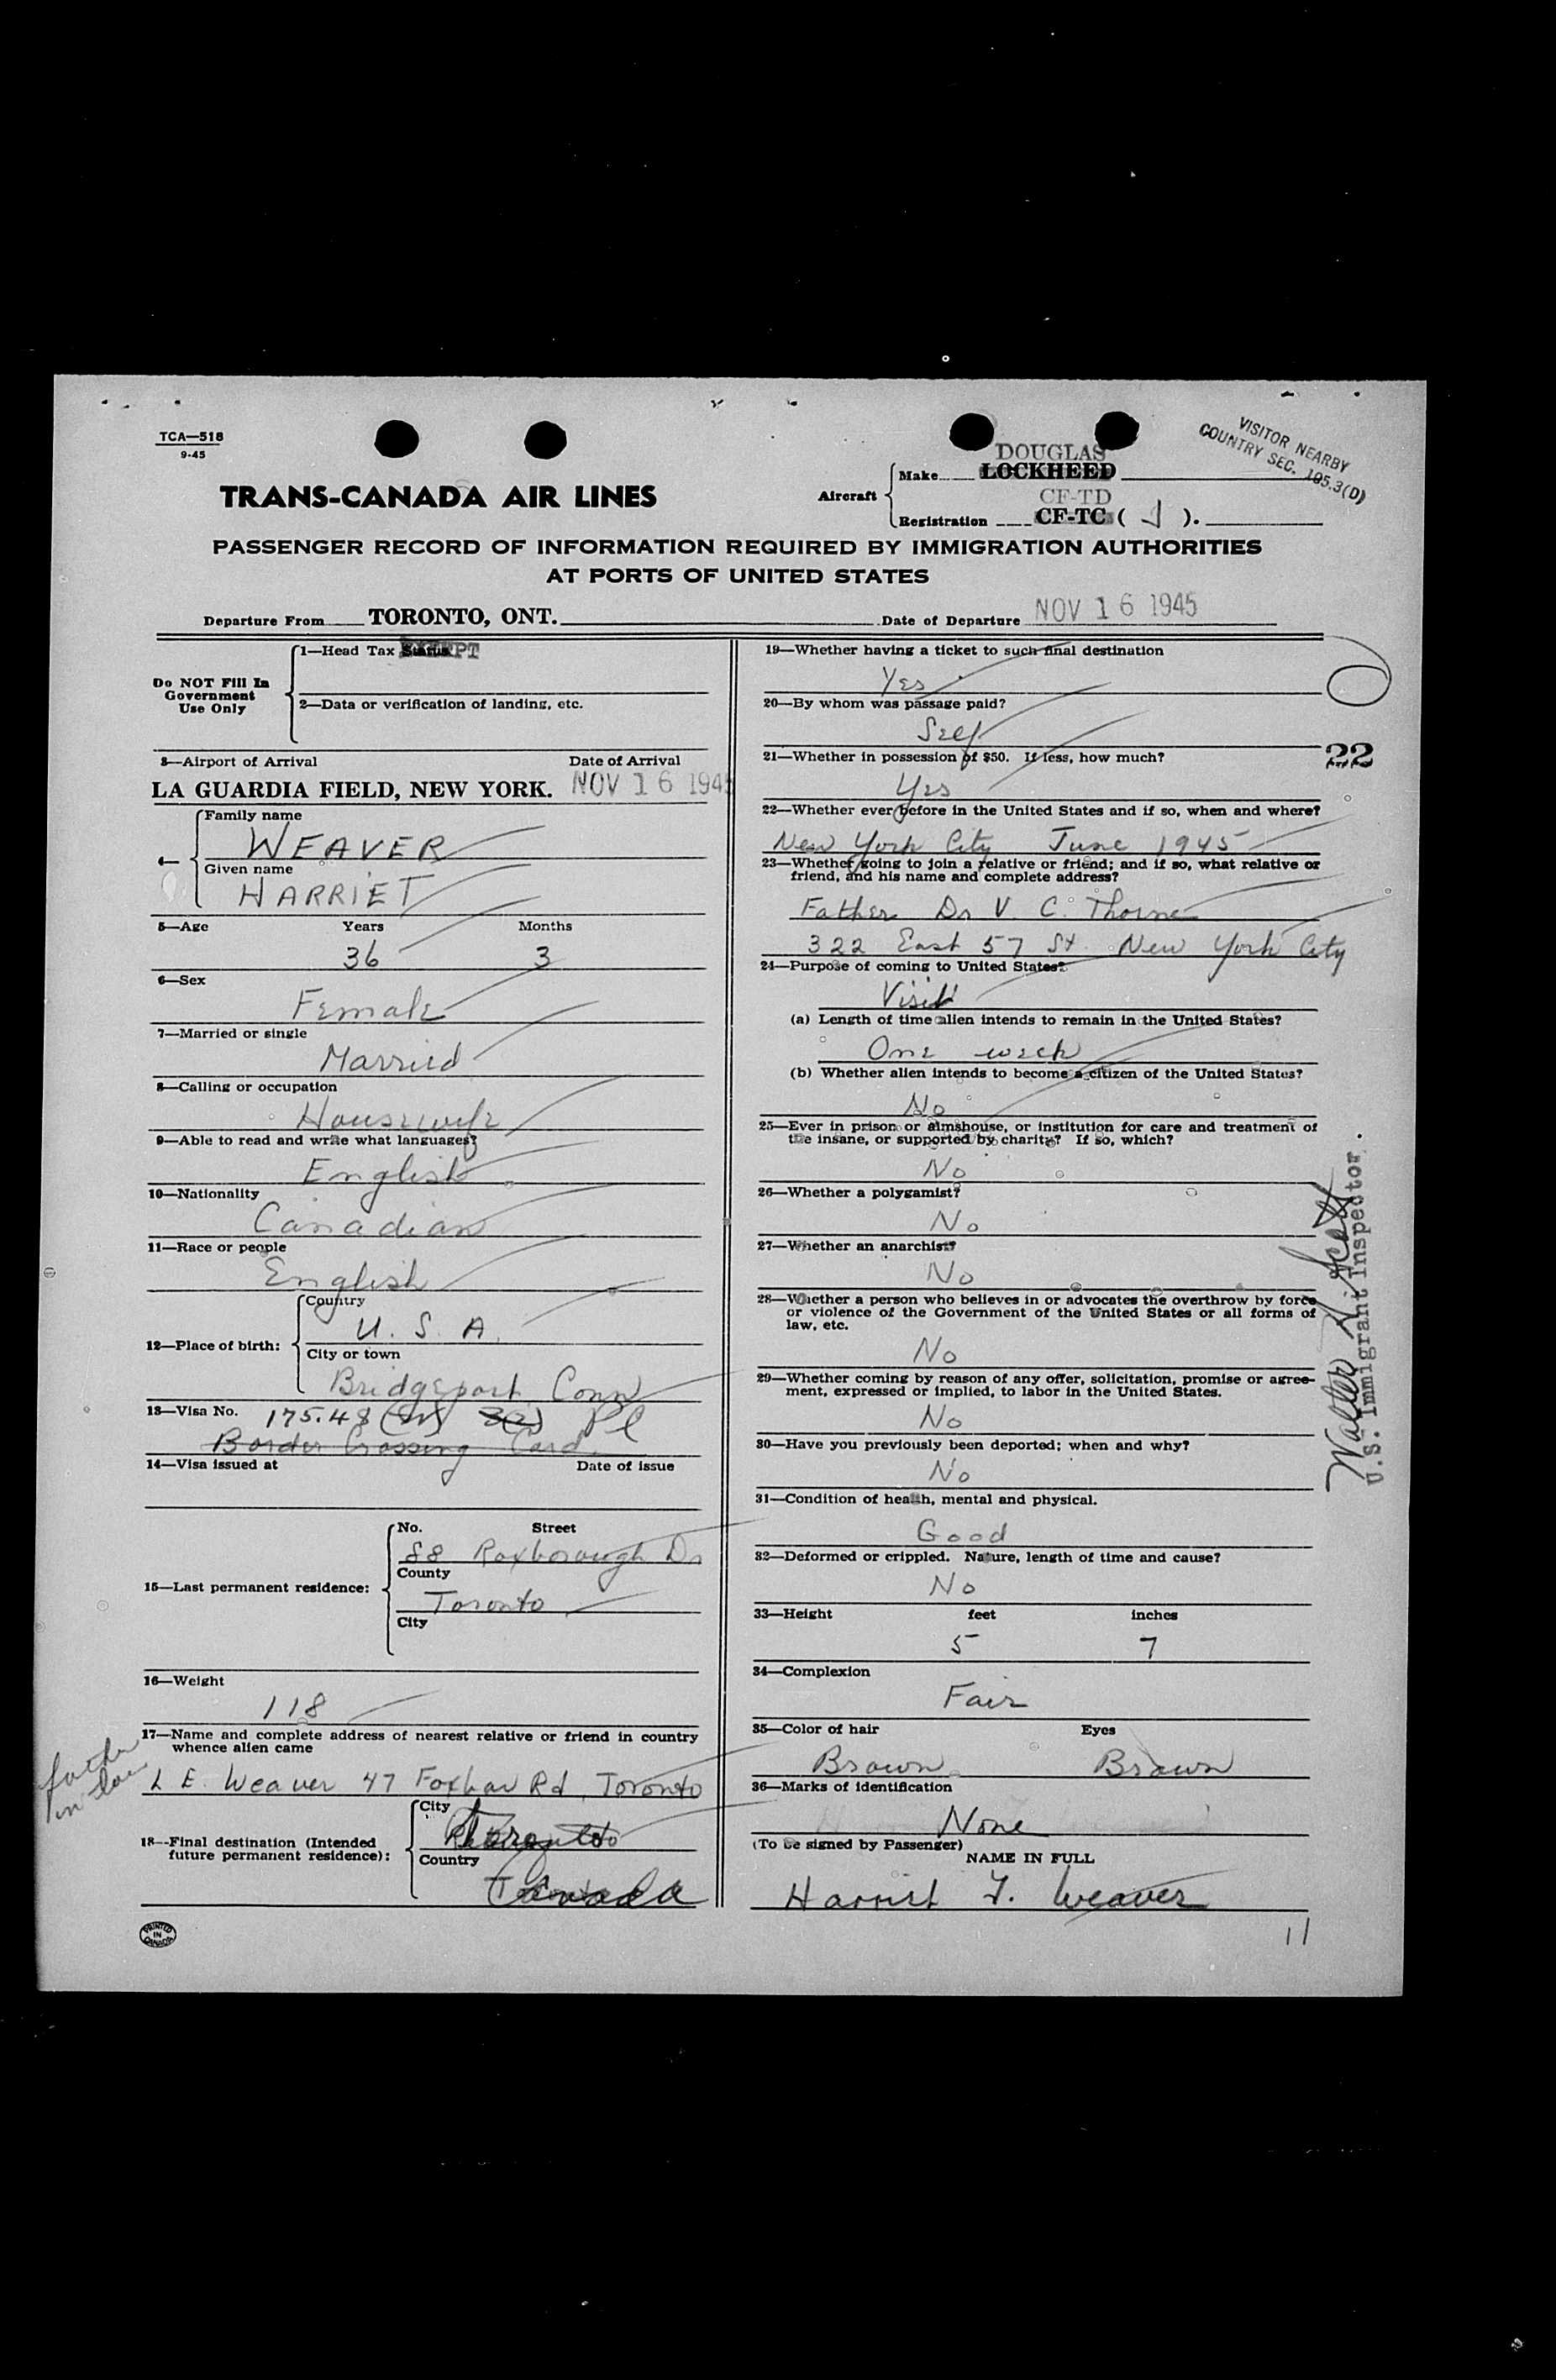 TCA—518
9-45
VISITOR NEARBY
COUNTRY SEC. 195.3(D)
DOUGLAS
Make LOCKHEED
TRANS-CANADA AIR LINES
Aircraft
CF-TD
Registration CF-TC ( J ).
PASSENGER RECORD OF INFORMATION REQUIRED BY IMMIGRATION AUTHORITIES
AT PORTS OF UNITED STATES
Departure From TORONTO, ONT. Date of Departure NOV 16 1945
Do NOT Fill In
Government
Use Only
1—Head Tax Status EXEMPT
2—Data or verification of landing, etc.
3—Airport of Arrival Date of Arrival
LA GUARDIA FIELD, NEW YORK. NOV 16 1945
4—
Family name
WEAVER
Given name
HARRIET
5—Age Years Months
36 3
6—Sex
Female
7—Married or single
Married
8—Calling or occupation
Housewife
9—Able to read and write what languages?
English
10—Nationality
Canadian
11—Race or people
English
12—Place of birth:
Country
U. S. A.
City or town
Bridgeport Conn
13—Visa No. 175.48
Border Crossing Card
14—Visa issued at Date of issue
15—Last permanent residence:
No. Street
88 Roxborough Dr
County
Toronto
City
16—Weight
118
17—Name and complete address of nearest relative or friend in country
whence alien came
father
in law
L E. Weaver 47 Foxbar Rd, Toronto
18—Final destination (Intended
future permanent residence):
City
Toronto
Country
Canada
PRINTED
IN
CANADA
19—Whether having a ticket to such final destination
Yes
20—By whom was passage paid?
Self
21—Whether in possession of $50. If less, how much?
Yes
22
22—Whether ever before in the United States and if so, when and where?
New York City June 1945
23—Whether going to join a relative or friend; and if so, what relative or
friend, and his name and complete address?
Father Dr V. C. Thorne
322 East 57 St. New York City
24—Purpose of coming to United States?
Visit
(a) Length of time alien intends to remain in the United States?
One week
(b) Whether alien intends to become a citizen of the United States?
No
25—Ever in prison or almshouse, or institution for care and treatment of
the insane, or supported by charity? If so, which?
No
26—Whether a polygamist?
No
27—Whether an anarchist?
No
28—Whether a person who believes in or advocates the overthrow by force
or violence of the Government of the United States or all forms of
law, etc.
No
29—Whether coming by reason of any offer, solicitation, promise or agree-
ment, expressed or implied, to labor in the United States.
No
30—Have you previously been deported; when and why?
No
31—Condition of health, mental and physical.
Good
32—Deformed or crippled. Nature, length of time and cause?
No
33—Height feet inches
5 7
34—Complexion
Fair
35—Color of hair Eyes
Brown Brown
36—Marks of identification
None
(To be signed by Passenger)
NAME IN FULL
Harriet T. Weaver
11
Walter Scott
U.S. Immigrant Inspector.